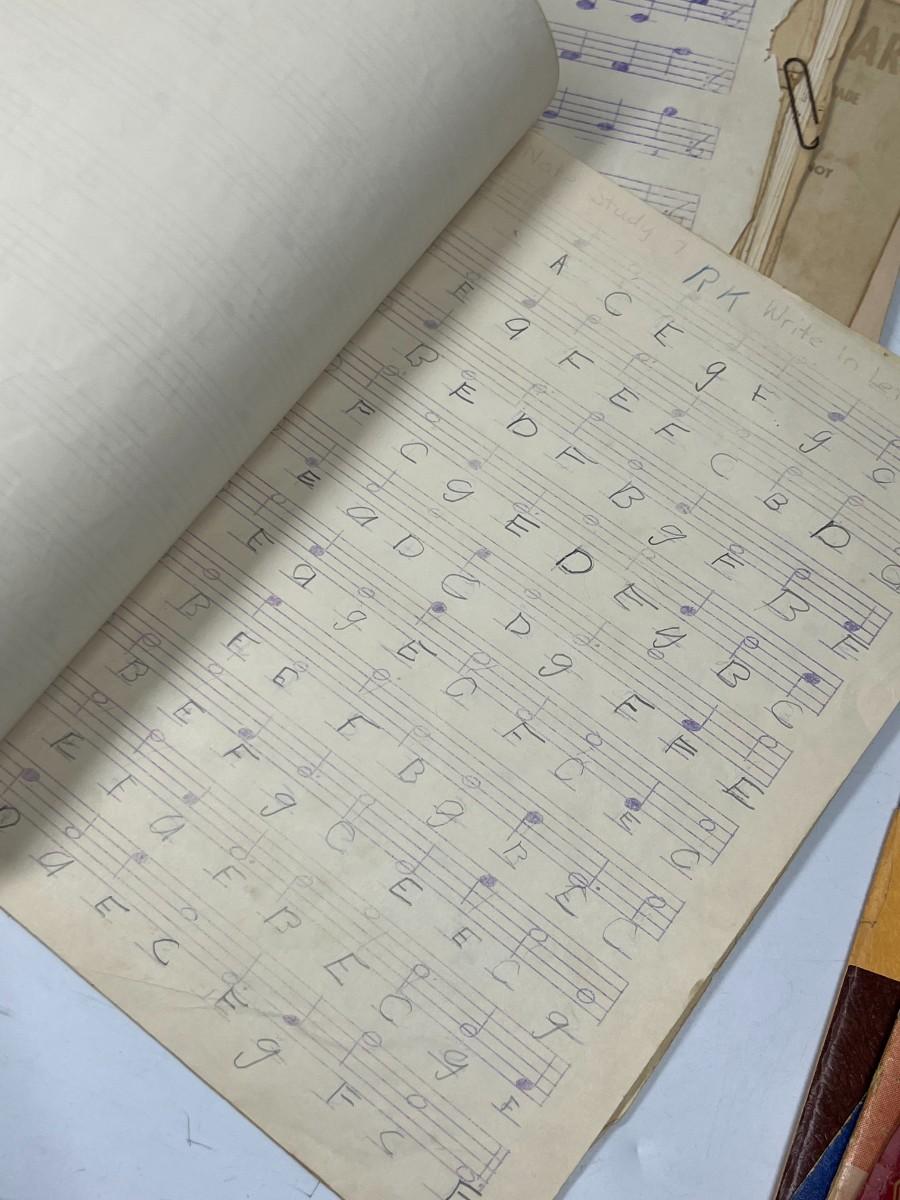 Study 7 RK Write In
A C E g F g C
E g F E F C B D
B E D F B g F B E
F C g E D E g B C
E a D C D g F E E
E a g E C F C E C
B E E F B g B E C
B E F g C E E C g
E F a F B E C g F
a E C E g F C